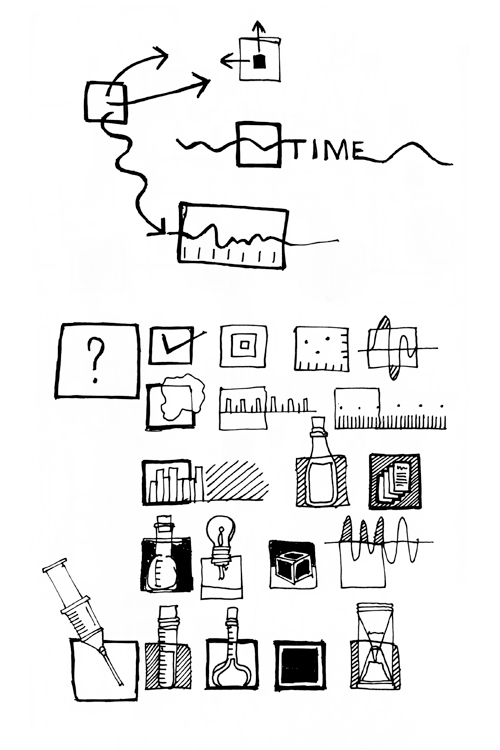 TIME
?